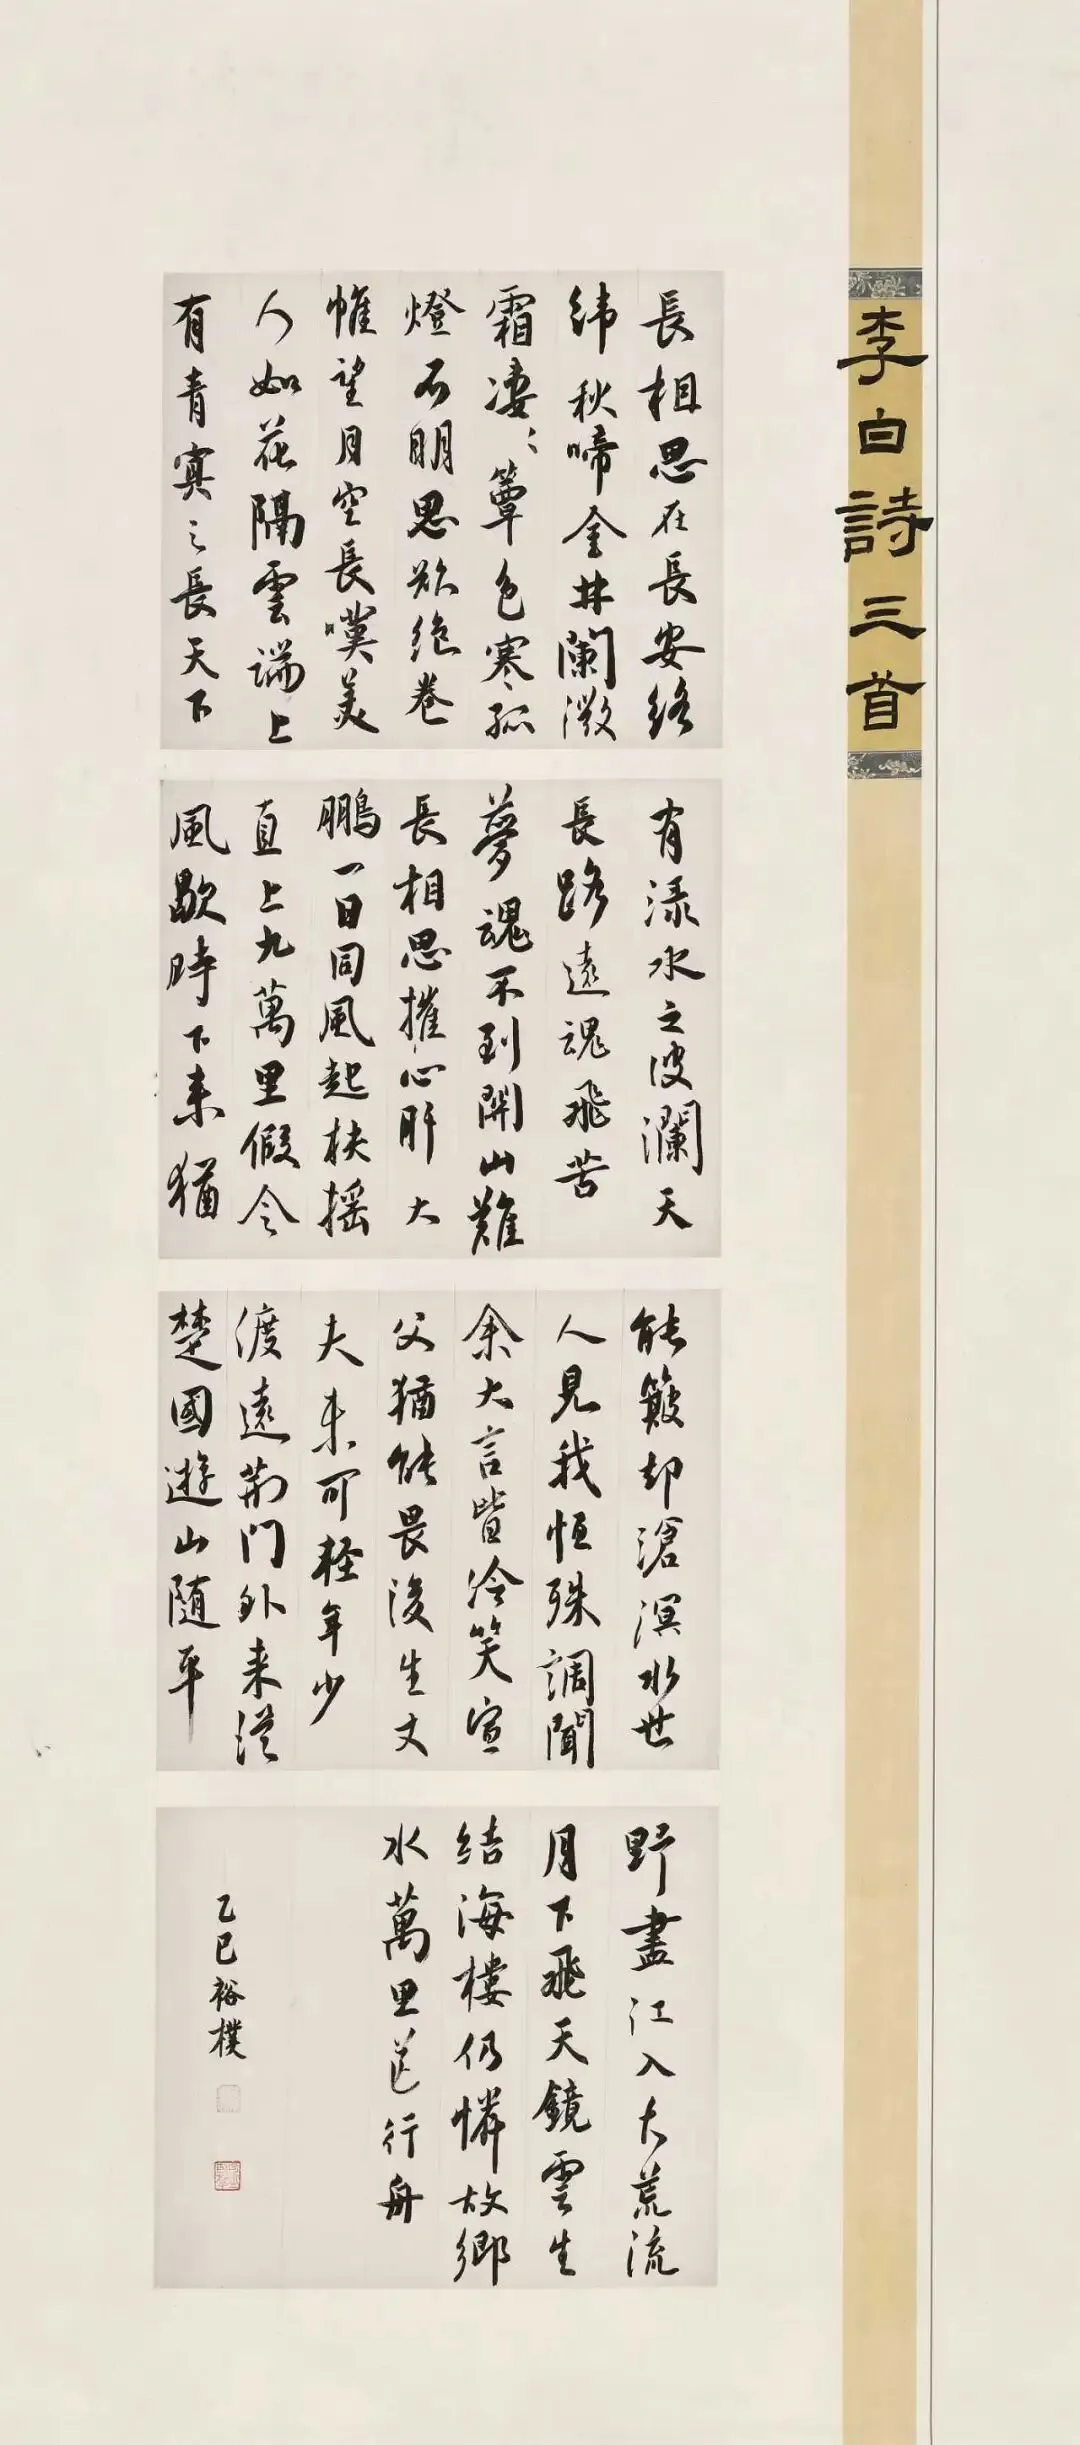 李白詩三首
長相思在長安絡
緯秋啼金井闌微
霜凄〻簟色寒孤
燈不明思欲絕卷
帷望月空長嘆美
人如花隔雲端上
有青冥之長天下
有淥水之波瀾天
長路遠魂飛苦
夢魂不到關山難
長相思摧心肝大
鵬一日同風起扶搖
直上九萬里假令
風歇時下來猶
能簸却滄溟水世
人見我恒殊調聞
余大言皆冷笑宣
父猶能畏後生丈
夫未可輕年少
渡遠荊門外来從
楚國遊山隨平
野盡江入大荒流
月下飛天鏡雲生
結海樓仍憐故鄉
水萬里送行舟
乙巳裕樸